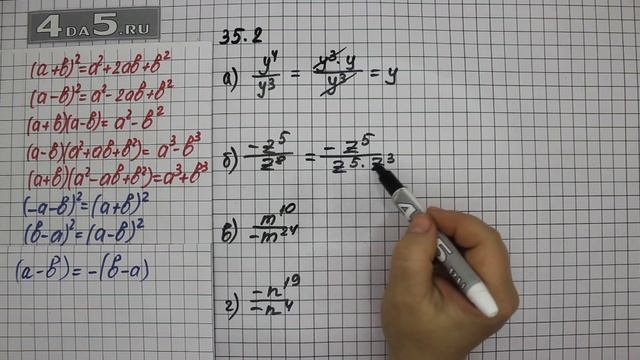 4DA5.RU
(a+b)²=a²+2ab+b²
(a-b)²=a²-2ab+b²
(a+b)(a-b)=a²-b²
(a-b)(a²+ab+b²)=a³-b³
(a+b)(a²-ab+b²)=a³+b³
(-a-b)²=(a+b)²
(b-a)²=(a-b)²
(a-b)=-(b-a)
35.2
а) y⁴/y³ = y³·y/y³ = y
б) -z⁵/z⁸ = -z⁵/z⁵·z³
в) m¹⁰/-m²⁴
г) -n¹⁹/-n⁴